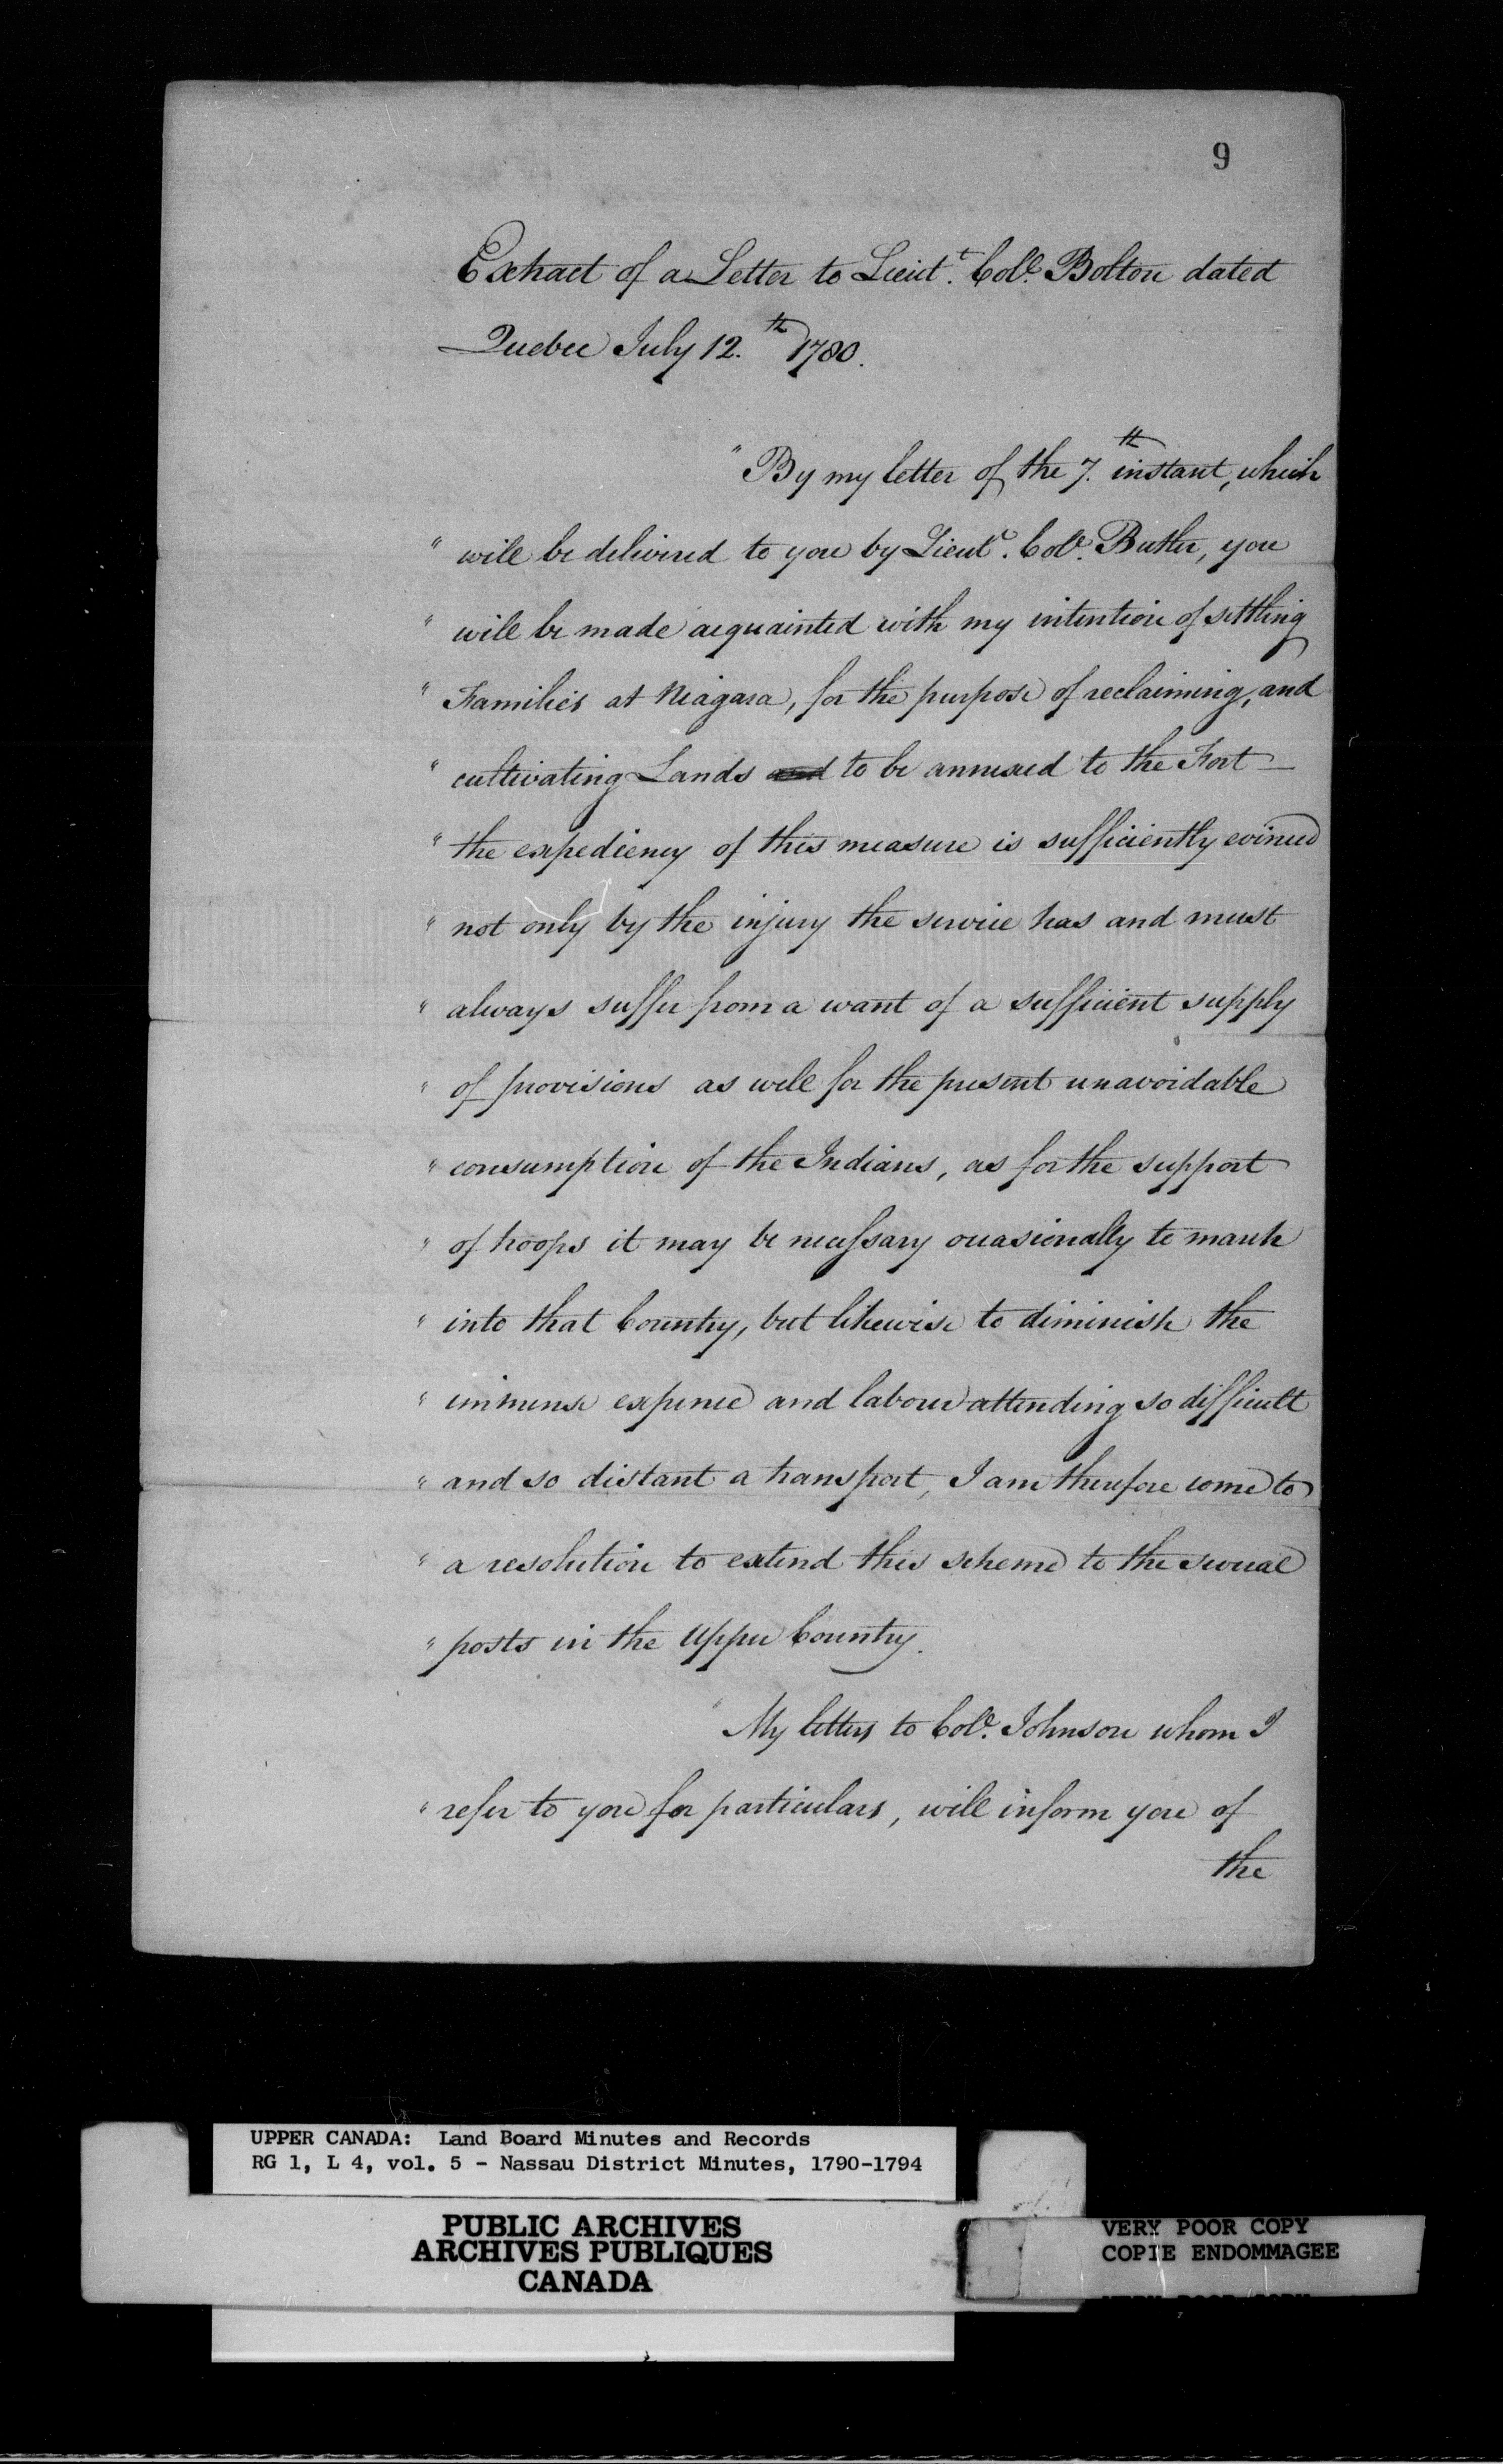 9
Extract of a Letter to Lieut.t Coll. Bolton dated
Quebec July 12.th 1780.
"By my letter of the 7.th instant, which
" will be delivered to you by Lieut. Coll. Butler, you
" will be made acquainted with my intention of settling
" Families at Niagara, for the purpose of reclaiming, and
" cultivating Lands and to be annexed to the Fort –
" the expediency of this measure is sufficiently evinced
" not only by the injury the service has and must
" always suffer from a want of a sufficient supply
" of provisions as well for the present unavoidable
" consumption of the Indians, as for the support
" of troops it may be necessary occasionally to march
" into that Country, but likewise to diminish the
" immense expence and labour attending so difficult
" and so distant a transport, I am therefore come to
" a resolution to extend this scheme to the several
" posts in the Upper Country.
" My letters to Coll. Johnson whom I
" refer to you for particulars, will inform you of
the
UPPER CANADA: Land Board Minutes and Records
RG 1, L 4, vol. 5 - Nassau District Minutes, 1790-1794
PUBLIC ARCHIVES
ARCHIVES PUBLIQUES
CANADA
VERY POOR COPY
COPIE ENDOMMAGEE